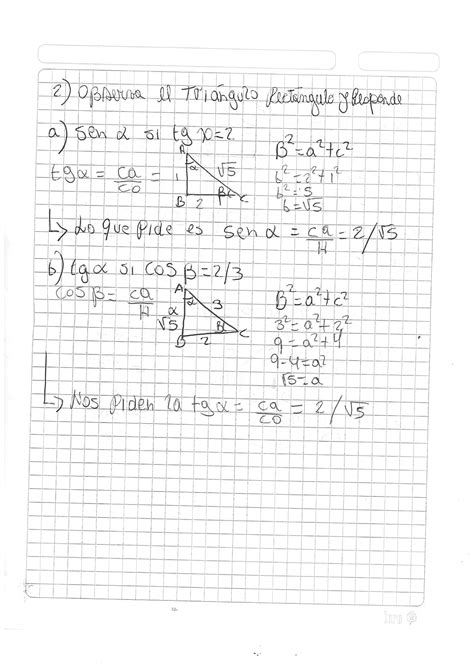 2) Observa el Triángulo Rectángulo y Responde
a) sen α si tg α = 2
tgα = ca/co =
A
α
1
√5
B
2
β
C
B² = a² + c²
b² = 2² + 1²
b² = 5
b = √5
↳ Lo que pide es sen α = ca/H = 2/√5
b) tgα si cos β = 2/3
cos β = ca/H
A
α
3
α
√5
B
2
β
C
B² = a² + c²
3² = a² + 2²
9 = a² + 4
9 - 4 = a²
√5 = a
↳ Nos piden la tgα = ca/co = 2/√5